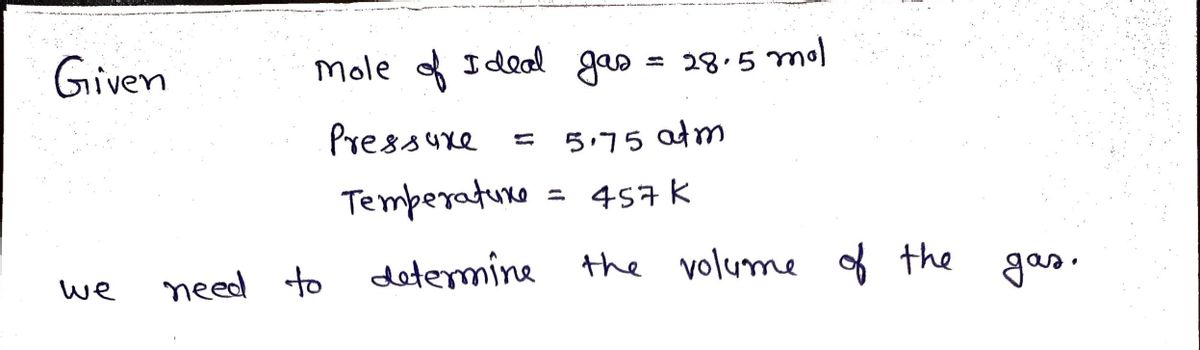 Given mole of Ideal gas = 28.5 mol
Pressure = 5.75 atm
Temperature = 457 K
we need to determine the volume of the gas.